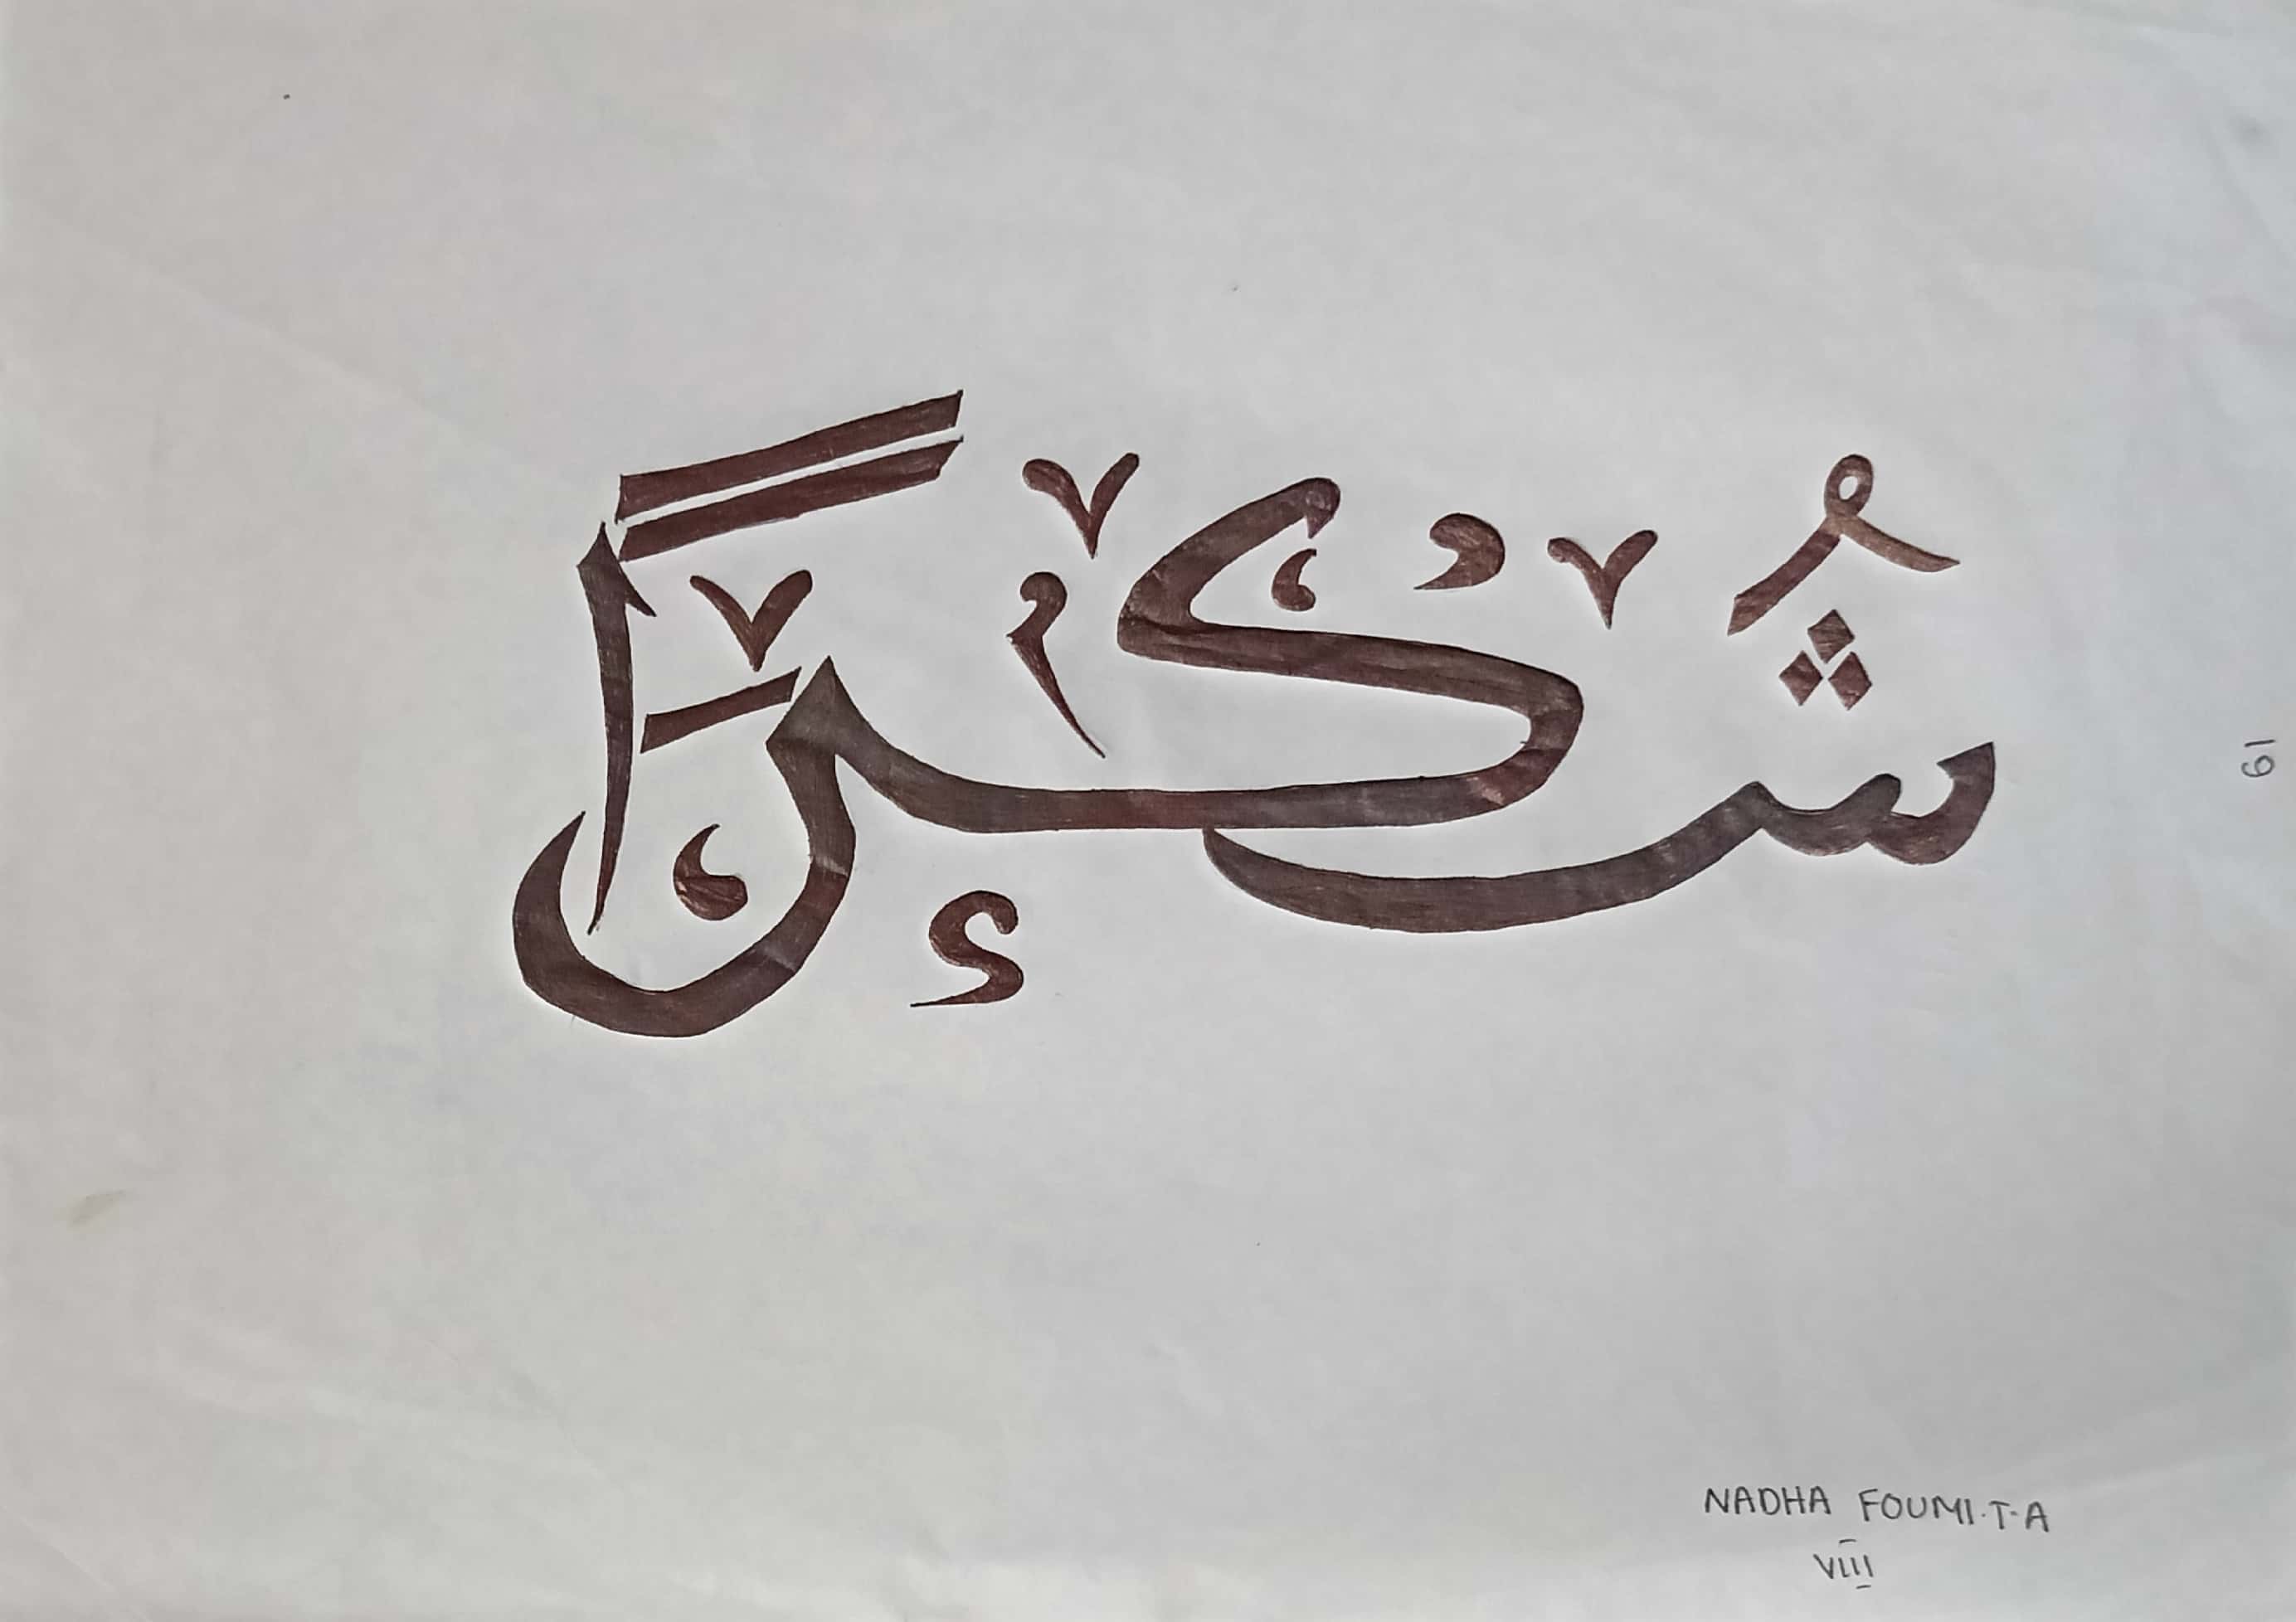 شُكْرًا
NADHA FOUMI.T.A
VIII
19